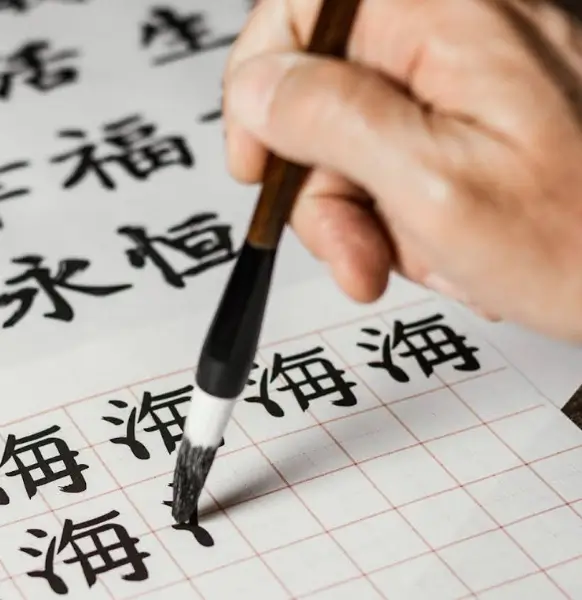 活 生
福
永恒
海海海海
海